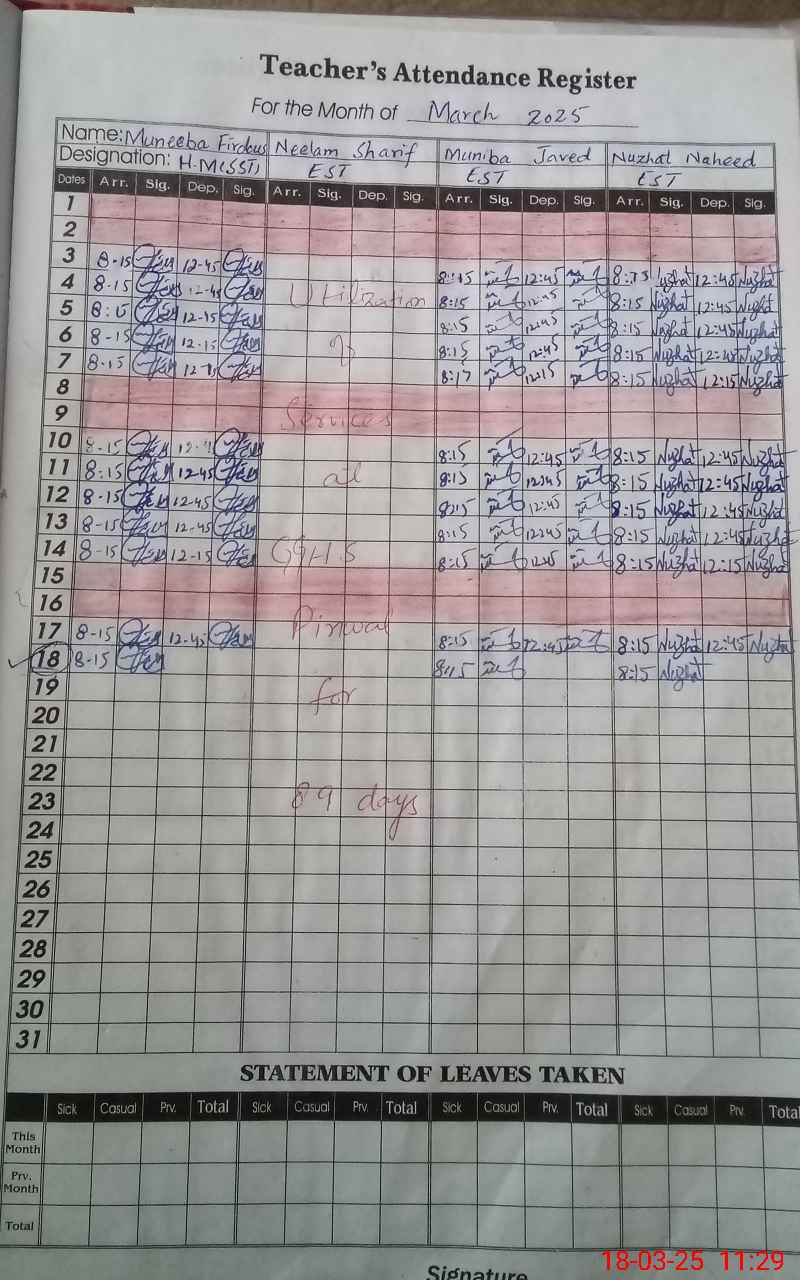 Teacher's Attendance Register
For the Month of March 2025
Name: Muneeba Firdous Neelam Sharif Muniba Javed Nuzhat Naheed
Designation: H.M(SST) EST EST EST
Dates Arr. Sig. Dep. Sig. Arr. Sig. Dep. Sig. Arr. Sig. Dep. Sig. Arr. Sig. Dep. Sig.
1
2
3 8-15 12-45 8:15 12:45 8:15 Nuzhat 12:45 Nuzhat
4 8-15 12-45 Utilization 8:15 12:45 8:15 Nuzhat 12:45 Nuzhat
5 8:15 12-15 8:15 12:45 8:15 Nuzhat 12:45 Nuzhat
6 8-15 12-15 of 8:15 12:45 8:15 Nuzhat 12:45 Nuzhat
7 8-15 8:17 12:15 8:15 Nuzhat 12:15 Nuzhat
8
9 Services
10 8-15 8:15 12:45 8:15 Nuzhat 12:45 Nuzhat
11 8:15 12-45 at 8:15 12:45 8:15 Nuzhat 12:45 Nuzhat
12 8-15 12-45 8:15 12:45 8:15 Nuzhat 12:45 Nuzhat
13 8-15 12-45 8:15 12:45 8:15 Nuzhat 12:45 Nuzhat
14 8-15 12-15 GGHS 8:15 8:15 Nuzhat 12:15 Nuzhat
15
16
17 8-15 12-45 Pinwal 8:15 12:45 8:15 Nuzhat 12:45 Nuzhat
18 8-15 8:15 8:15 Nuzhat
19
for
20
21
22
23 89 days
24
25
26
27
28
29
30
31
STATEMENT OF LEAVES TAKEN
Sick Casual Prv. Total Sick Casual Prv. Total Sick Casual Prv. Total Sick Casual Prv. Total
This Month
Prv. Month
Total
Signature
18-03-25 11:29